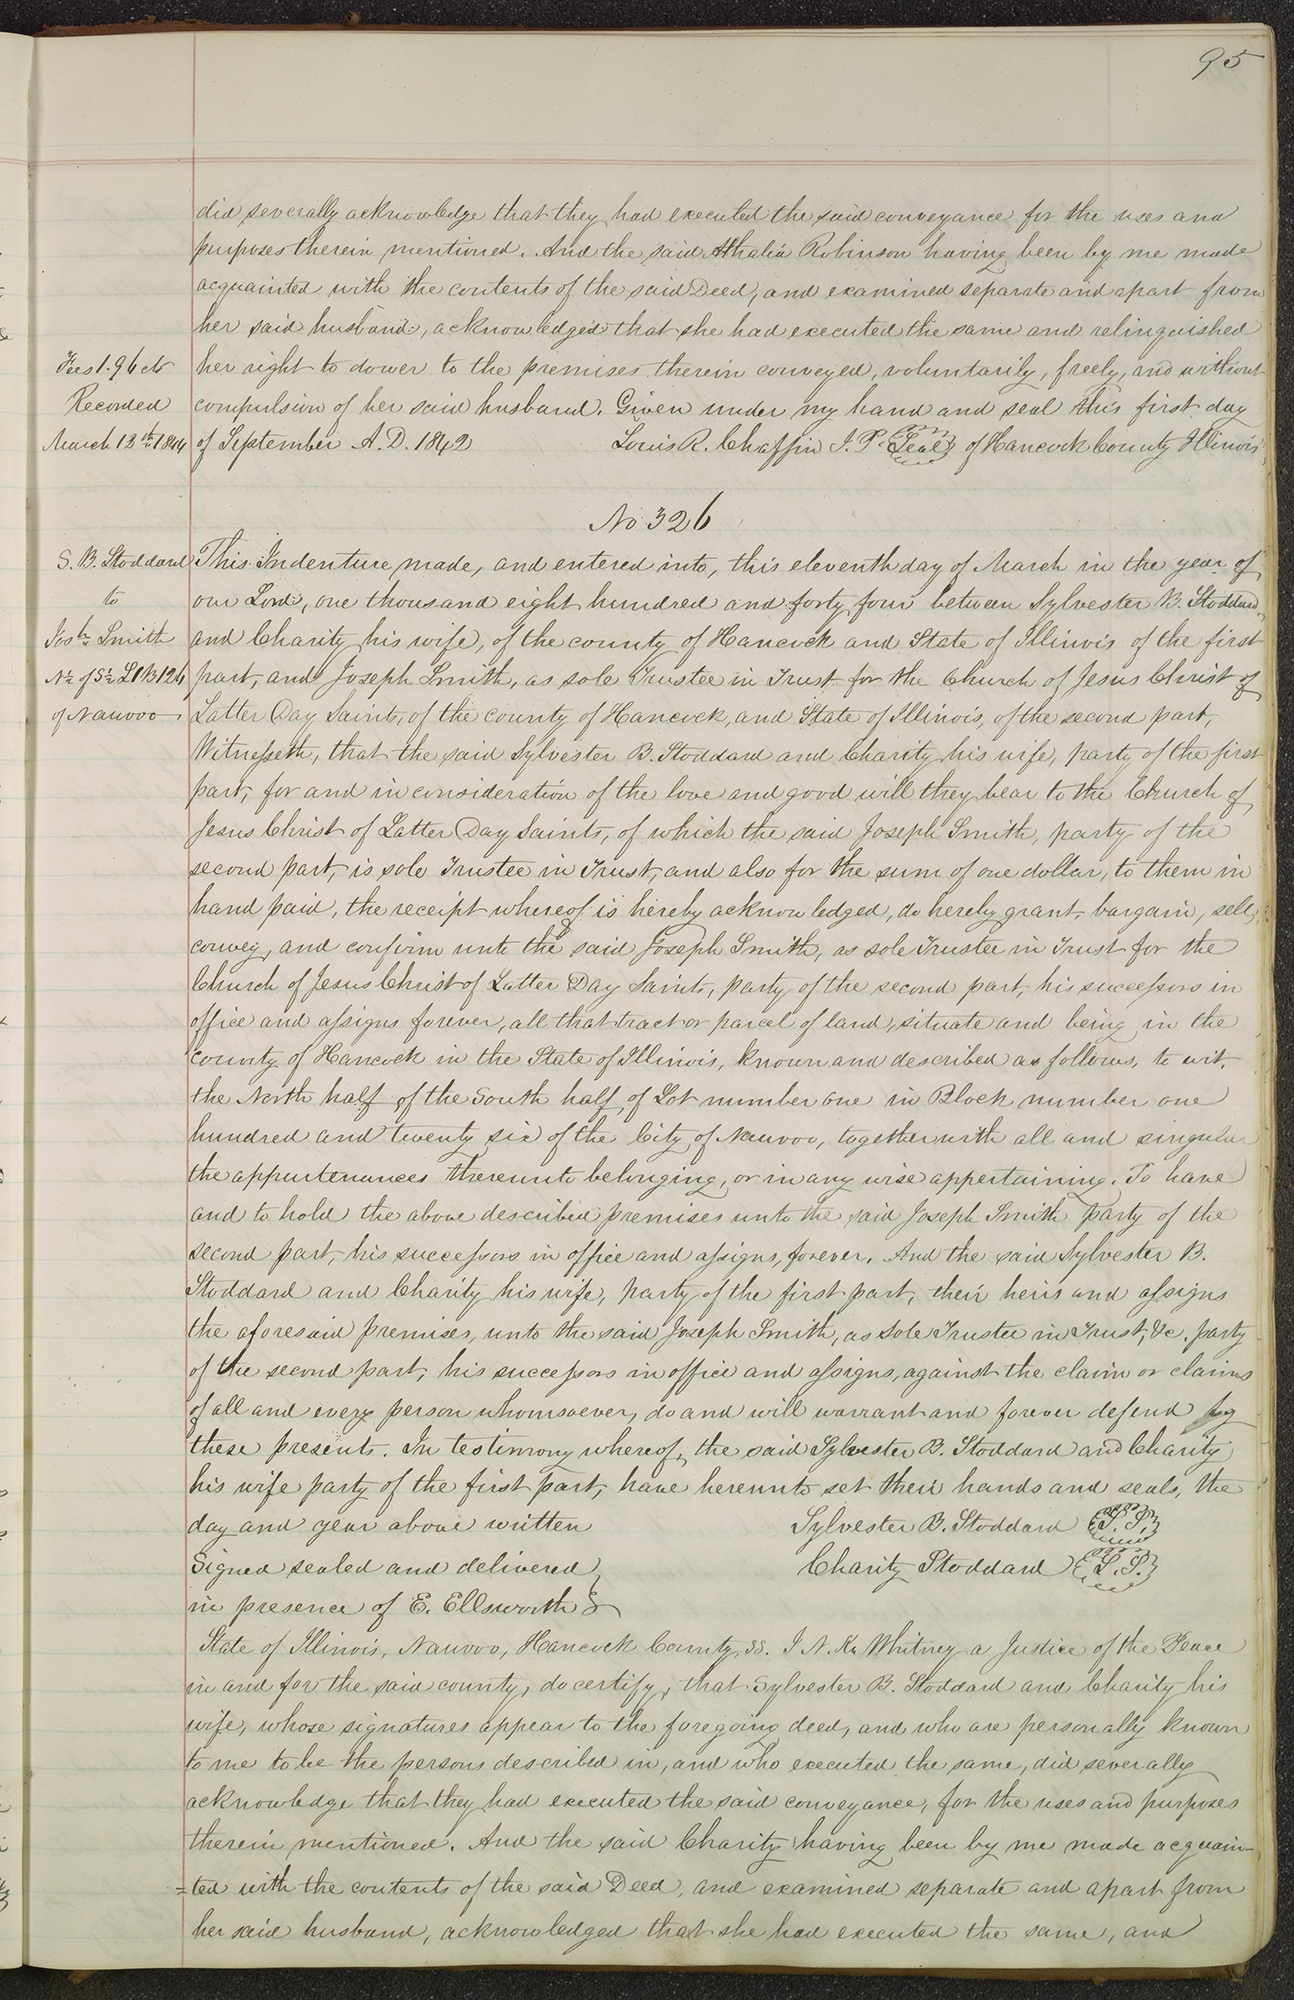 95
did severally acknowledge that they had executed the said conveyance for the uses and
purposes therein mentioned. And the said Athalia Robinson having been by me made
acquainted with the contents of the said Deed, and examined separate and apart from
her said husband, acknowledged that she had executed the same and relinquished
Fees 1.96 cts
her right to dower to the premises therein conveyed, voluntarily, freely, and without
Recorded
compulsion of her said husband. Given under my hand and seal this first day
March 12th 1844
of September A.D. 1842 Louis R. Chaffin J. P. Seal of Hancock County Illinois
No 326
S. B. Stoddard
to
Josh. Smith
N½ of S½ L1 B126
of Nauvoo
This Indenture, made, and entered into, this eleventh day of March in the year of
our Lord, one thousand eight hundred and forty four between Sylvester B. Stoddard,
and Charity his wife, of the county of Hancock and State of Illinois of the first
part, and Joseph Smith, as sole Trustee in Trust for the Church of Jesus Christ of
Latter Day Saints, of the county of Hancock, and State of Illinois, of the second part,
Witnesseth, that the said Sylvester B. Stoddard and Charity his wife, party of the first
part, for and in consideration of the love and good will they bear to the Church of
Jesus Christ of Latter Day Saints, of which the said Joseph Smith, party of the
second part, is sole Trustee in Trust, and also for the sum of one dollar, to them in
hand paid, the receipt whereof is hereby acknowledged, do hereby grant, bargain, sell,
convey, and confirm unto the said Joseph Smith, as sole Trustee in Trust for the
Church of Jesus Christ of Latter Day Saints, party of the second part, his successors in
office and assigns forever, all that tract or parcel of land, situate and being in the
county of Hancock in the State of Illinois, known and described as follows, to wit,
the North half of the South half of Lot number one in Block number one
hundred and twenty six of the City of Nauvoo, together with all and singular
the appurtenances thereunto belonging, or in any wise appertaining. To have
and to hold the above described premises unto the said Joseph Smith party of the
second part, his successors in office and assigns, forever. And the said Sylvester B.
Stoddard and Charity his wife, party of the first part, their heirs and assigns
the aforesaid premises, unto the said Joseph Smith, as Sole Trustee in Trust, &c. party
of the second part, his successors in office and assigns, against the claim or claims
of all and every person whomsoever, do and will warrant and forever defend by
these presents. In testimony whereof, the said Sylvester B. Stoddard and Charity
his wife party of the first part, have hereunto set their hands and seals, the
day and year above written Sylvester B. Stoddard L.S.
Signed sealed and delivered Charity Stoddard L.S.
in presence of E. Ellsworth
State of Illinois, Nauvoo, Hancock County, ss. I N. K. Whitney a Justice of the Peace
in and for the said county, do certify, that Sylvester B. Stoddard and Charity his
wife, whose signatures appear to the foregoing deed, and who are personally known
to me to be the persons described in, and who executed the same, did severally
acknowledge that they had executed the said conveyance, for the uses and purposes
therein mentioned. And the said Charity having been by me made acquain-
=ted with the contents of the said Deed, and examined separate and apart from
her said husband, acknowledged that she had executed the same, and